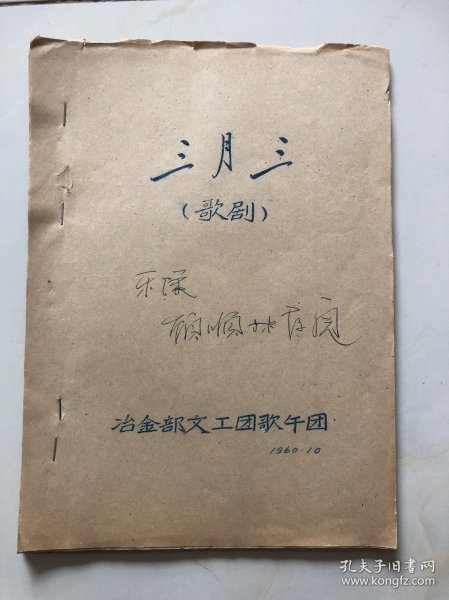 三月三
（歌剧）
乐队
冶金部文工团歌午团
1960.10
孔夫子旧书网
www.kongfz.com